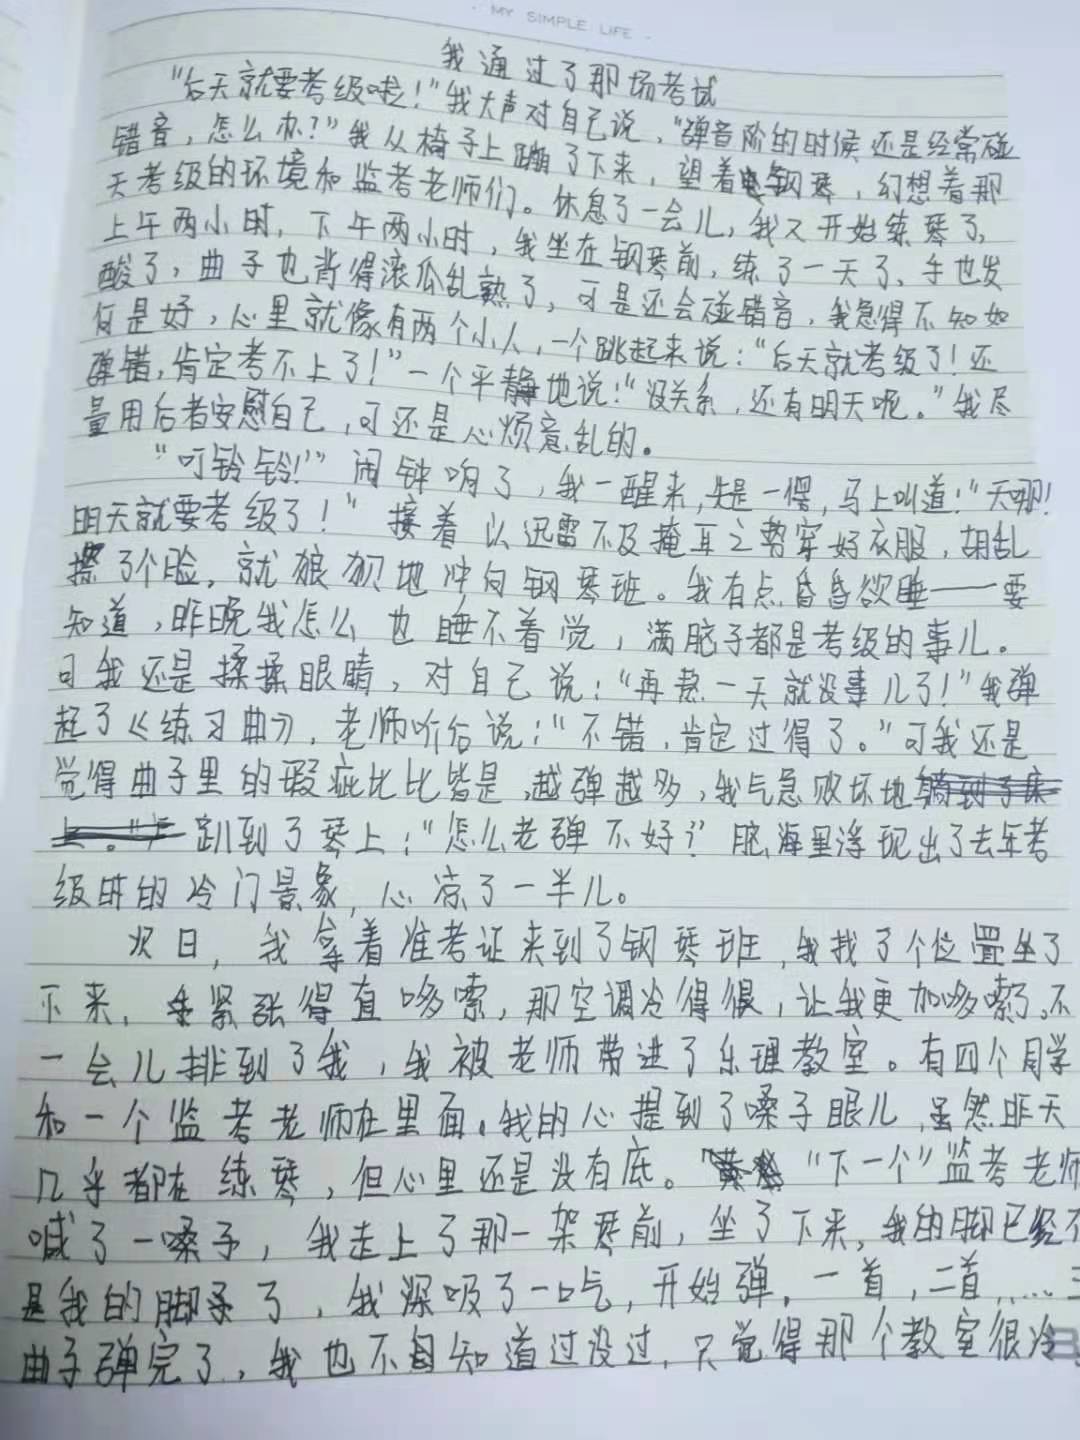 · MY SIMPLE LIFE ·
我通过了那场考试
“后天就要考级啦！”我大声对自己说，“弹音阶的时候还是经常碰
错音，怎么办？”我从椅子上蹦了下来，望着钢琴，幻想着那
天考级的环境和监考老师们。休息了一会儿，我又开始练琴了，
上午两小时，下午两小时，我坐在钢琴前，练了一天了，手也发
酸了，曲子也背得滚瓜乱熟了，可是还会碰错音，我急得不知如
何是好，心里就像有两个小人，一个跳起来说：“后天就考级了！还
弹错，肯定考不上了！”一个平静地说：“没关系，还有明天呢。”我尽
量用后者安慰自己，可还是心烦意乱的。
“叮铃铃！”闹钟响了，我一醒来，先是一愣，马上叫道：“天哪！
明天就要考级了！”接着以迅雷不及掩耳之势穿好衣服，胡乱
擦了个脸，就狼狈地冲向钢琴班。我有点昏昏欲睡——要
知道，昨晚我怎么也睡不着觉，满脑子都是考级的事儿。
可我还是揉揉眼睛，对自己说：“再熬一天就没事儿了！”我弹
起了《练习曲》，老师听后说：“不错，肯定过得了。”可我还是
觉得曲子里的瑕疵比比皆是，越弹越多，我气急败坏地
趴到了琴上：“怎么老弹不好？”脑海里浮现出了去年考
级时的冷门景象，心凉了一半儿。
次日，我拿着准考证来到了钢琴班，我找了个位置坐了
下来，紧张得直哆嗦，那空调冷得很，让我更加哆嗦了。不
一会儿排到了我，我被老师带进了乐理教室。有四个同学
和一个监考老师在里面。我的心提到了嗓子眼儿，虽然昨天
几乎都在练琴，但心里还是没有底。“下一个”监考老师
喊了一嗓子，我走上了那一架琴前，坐了下来，我的脚已经不
是我的脚了，我深吸了一口气，开始弹，一首，二首，……三
曲子弹完了，我也不知道过没过，只觉得那个教室很冷